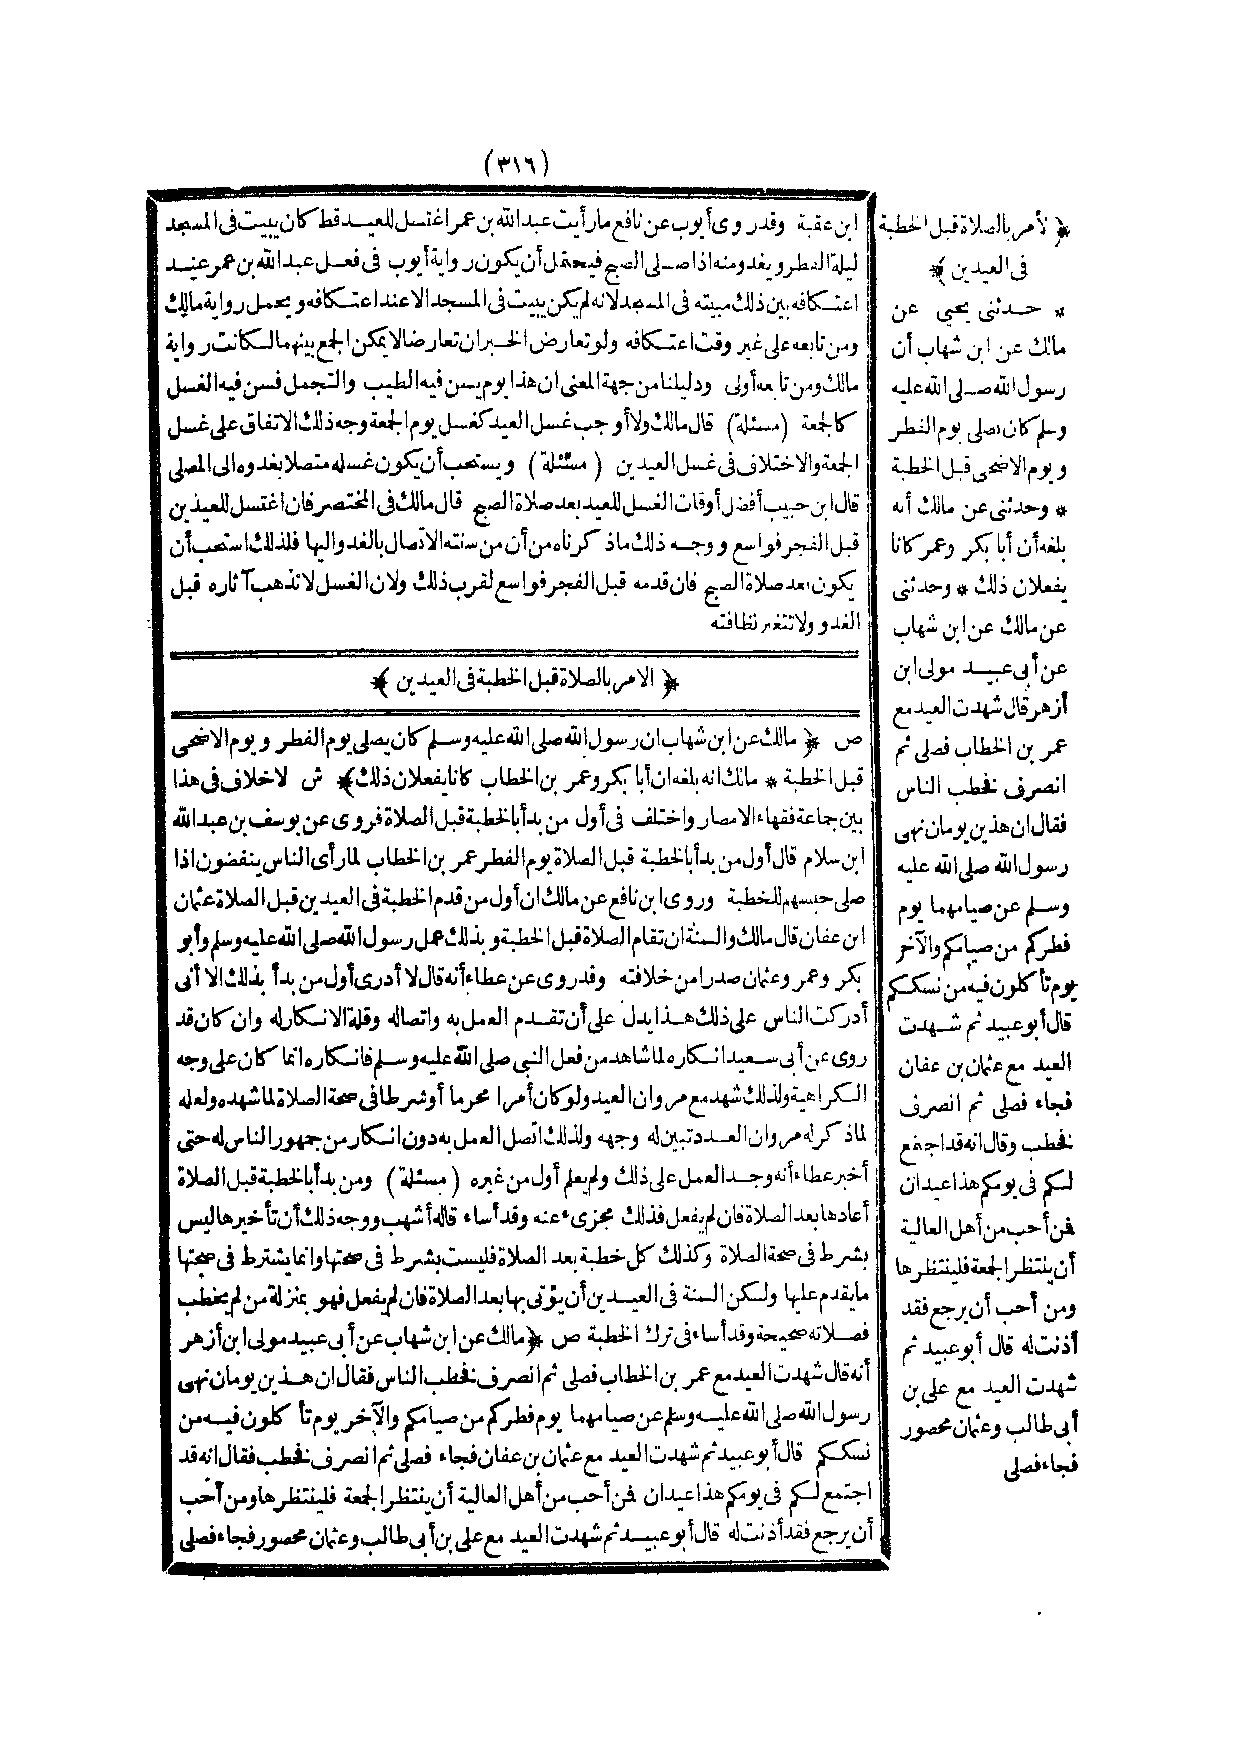 (٣١٦)
ابن عقبة وقدروى أيوب عن نافع مارأيت عبدالله بن عمر اغتسل للعيد قط كان يبيت فى المسجد
ليلة الفطر ويغدو منه اذا صلى الصبح فيحتمل أن يكون رواية أيوب فى فعل عبدالله بن عمر عند
اعتكافه بين ذلك مبيته فى المسجد لانه لم يكن يبيت فى المسجد الا عند اعتكافه ويحمل رواية مالك
ومن تابعه على غير وقت اعتكافه ولو تعارض الخبران تعارضا لا يمكن الجمع بينهما لكانت رواية
مالك ومن تابعه أولى ودليلنا من جهة المعنى ان هذا يوم يسن فيه الطيب والتجمل فسن فيه الغسل
كالجمعة (مسئلة) قال مالك ولا أوجب غسل العيد كغسل يوم الجمعة وجه ذلك الاتفاق على غسل
الجمعة والاختلاف فى غسل العيدين (مسئلة) ويستحب أن يكون غسله متصلا بغدوه الى المصلى
قال ابن حبيب أفضل أوقات الغسل للعيد بعد صلاة الصبح قال مالك فى المختصر فان اغتسل للعيدين
قبل الفجر فواسع ووجه ذلك ماذكرناه من أن من سنته الاتصال بالغدو اليها فلذلك استحب أن
يكون بعد صلاة الصبح فان قدمه قبل الفجر فواسع لقرب ذلك ولان الغسل لا تذهب آثاره قبل
الغدو ولا تتغير نظافته
﴿ الامر بالصلاة قبل الخطبة فى العيدين ﴾
ص ﴿ مالك عن ابن شهاب ان رسول الله صلى الله عليه وسلم كان يصلى يوم الفطر ويوم الاضحى
قبل الخطبة * مالك انه بلغه ان أبابكر وعمر بن الخطاب كانا يفعلان ذلك ﴾ ش لاخلاف فى هذا
بين جماعة فقهاء الامصار واختلف فى أول من بدأ بالخطبة قبل الصلاة فروى عن يوسف بن عبدالله
ابن سلام قال أول من بدأ بالخطبة قبل الصلاة يوم الفطر عمر بن الخطاب لما رأى الناس ينفضون اذا
صلى حبسهم للخطبة وروى ابن نافع عن مالك ان أول من قدم الخطبة فى العيدين قبل الصلاة عثمان
ابن عفان قال مالك والسنة ان تقام الصلاة قبل الخطبة وبذلك عمل رسول الله صلى الله عليه وسلم وأبو
بكر وعمر وعثمان صدرا من خلافته وقدروى عن عطاء أنه قال لا أدرى أول من بدأ بذلك الا أنى
أدركت الناس على ذلك هذا يدل على أن تقدم العمل به واتصاله وقلة الانكار له وان كان قد
روى عن أبى سعيد انكاره لما شاهد من فعل النبى صلى الله عليه وسلم فانكاره انما كان على وجه
الكراهية ولذلك شهد مع مروان العيد ولو كان أمرا محرما أو شرطا فى صحة الصلاة لما شهده ولعله
لماذكر له مروان العد تبين له وجهه ولذلك اتصل العمل به دون انكار من جمهور الناس له حتى
أخبر عطاء أنه وجد العمل على ذلك ولم يعلم أول من غيره (مسئلة) ومن بدأ بالخطبة قبل الصلاة
أعادها بعد الصلاة فان لم يفعل فذلك مجزىء عنه وقد أساء قاله أشهب ووجه ذلك أن تأخيرها ليس
بشرط فى صحة الصلاة وكذلك كل خطبة بعد الصلاة فليست بشرط فى صحتها وانما يشترط فى صحتها
مايقدم عليها ولكن السنة فى العيدين أن يؤتى بها بعد الصلاة فان لم يفعل فهو بمنزلة من لم يخطب
فصلاته صحيحة وقد أساء فى ترك الخطبة ص ﴿ مالك عن ابن شهاب عن أبى عبيد مولى ابن أزهر
أنه قال شهدت العيد مع عمر بن الخطاب فصلى ثم انصرف نخطب الناس فقال ان هذين يومان نهى
رسول الله صلى الله عليه وسلم عن صيامهما يوم فطركم من صيامكم والآخر يوم تأكلون فيه من
نسككم قال أبو عبيد ثم شهدت العيد مع عثمان بن عفان فجاء فصلى ثم انصرف نخطب فقال انه قد
اجتمع لكم فى يومكم هذا عيدان فمن أحب من أهل العالية أن ينتظر الجمعة فلينتظرها ومن أحب
أن يرجع فقد أذنت له قال أبو عبيد ثم شهدت العيد مع على بن أبى طالب وعثمان محصور فجاء فصلى
﴿ لأمر بالصلاة قبل الخطبة
فى العيدين ﴾
* حدثنى يحيى عن
مالك عن ابن شهاب أن
رسول الله صلى الله عليه
وسلم كان يصلى يوم الفطر
ويوم الاضحى قبل الخطبة
* وحدثنى عن مالك أنه
بلغه أن أبا بكر وعمر كانا
يفعلان ذلك * وحدثنى
عن مالك عن ابن شهاب
عن أبى عبيد مولى ابن
أزهر قال شهدت العيد مع
عمر بن الخطاب فصلى ثم
انصرف نخطب الناس
فقال ان هذين يومان نهى
رسول الله صلى الله عليه
وسلم عن صيامهما يوم
فطركم من صيامكم والآخر
يوم تأكلون فيه من نسككم
قال أبو عبيد ثم شهدت
العيد مع عثمان بن عفان
فجاء فصلى ثم انصرف
نخطب وقال انه قد اجتمع
لكم فى يومكم هذا عيدان
فمن أحب من أهل العالية
أن ينتظر الجمعة فلينتظرها
ومن أحب أن يرجع فقد
أذنت له قال أبو عبيد ثم
شهدت العيد مع على بن
أبى طالب وعثمان محصور
فجاء فصلى